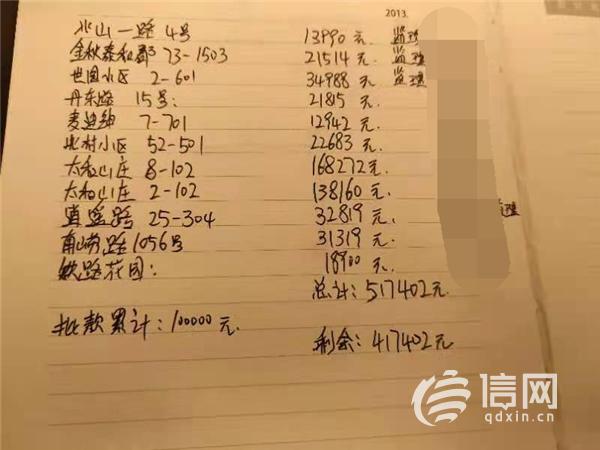 2013.
火山一路 4号 13990元 监理
金秋泰和郡 73-1503 21514元 监理
世园小区 2-601 34988元 监理
丹东路 15号: 21815元.
麦迪绅 7-701 12942元.
北村小区 52-501 22683元.
太和山庄 8-102 168272元.
太和山庄 2-102 138160元.
逍遥路 25-304 32819元. 监理
南崂路1056号 31319元.
铁路花园: 18900元.
总计: 517402元.
批款累计: 100000元.
剩余: 417402元
信网
qdxin.cn